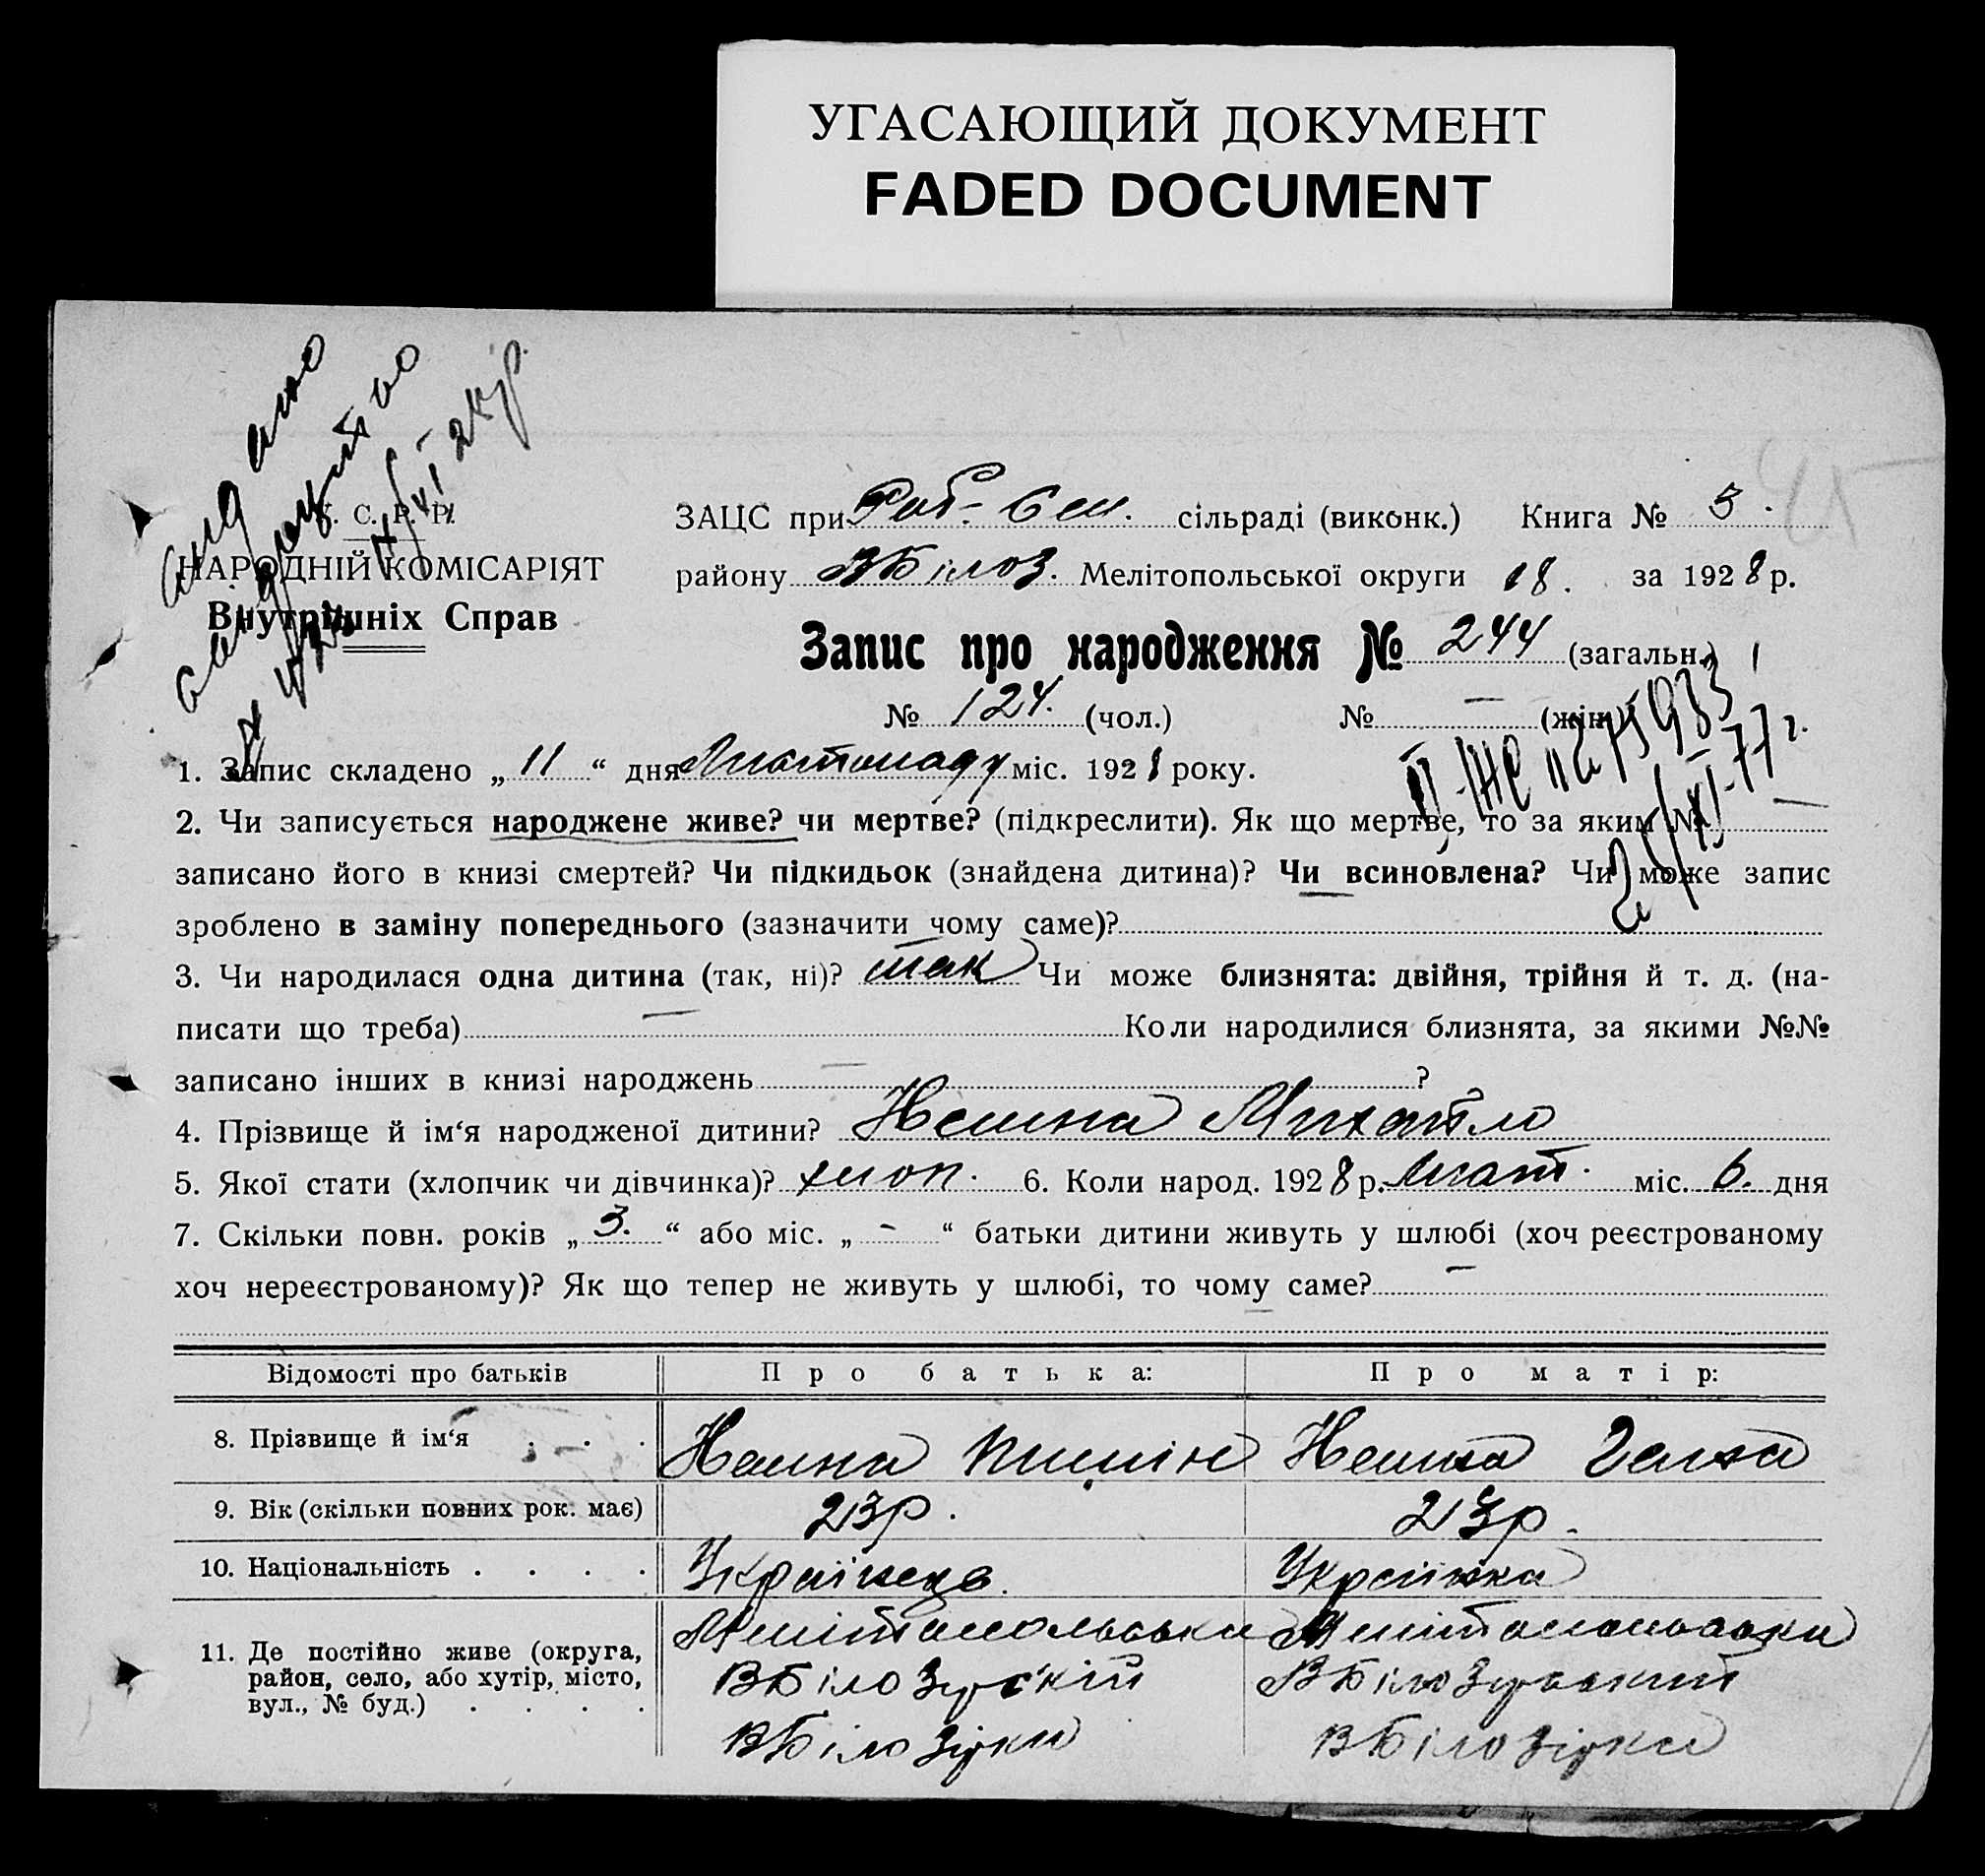 УГАСАЮЩИЙ ДОКУМЕНТ
FADED DOCUMENT
У. С. Р. Р.
НАРОДНІЙ КОМІСАРІЯТ
Внутрішніх Справ
ЗАЦС при сільраді (виконк.) Книга № 3.
району ВБілоз. Мелітопольської округи 18. за 1928 р.
Запис про народження № 244 (загальн.)
№ 124. (чол.) № — (жін.)
1. Запис складено „ 11 “ дня Листопаду міс. 1928 року.
2. Чи записується народжене живе? чи мертве? (підкреслити). Як що мертве, то за яким № —
записано його в книзі смертей? Чи підкидьок (знайдена дитина)? Чи всиновлена? Чи може запис
зроблено в заміну попереднього (зазначити чому саме)?
3. Чи народилася одна дитина (так, ні)? так Чи може близнята: двійня, трійня й т. д. (на-
писати що треба) — Коли народилися близнята, за якими №№
записано інших в книзі народжень — ?
4. Прізвище й ім‘я народженої дитини? Михайло
5. Якої стати (хлопчик чи дівчинка)? хлоп. 6. Коли народ. 1928 р. Лист. міс. 6. дня
7. Скільки повн. років „ 3. “ або міс. „ - “ батьки дитини живуть у шлюбі (хоч реєстрованому
хоч нереєстрованому)? Як що тепер не живуть у шлюбі, то чому саме? —
Відомості про батьків Про батька: Про матір:
8. Прізвище й ім‘я . . .
9. Вік (скільки повних рок. має) 23р. 23р.
10. Національність . . . . Українець. Українка
11. Де постійно живе (округа, Мелітопольська Мелітопольська
район, село, або хутір, місто, ВБілозірскій ВБілозірський
вул., № буд.) . . . . ВБілозірки ВБілозірка